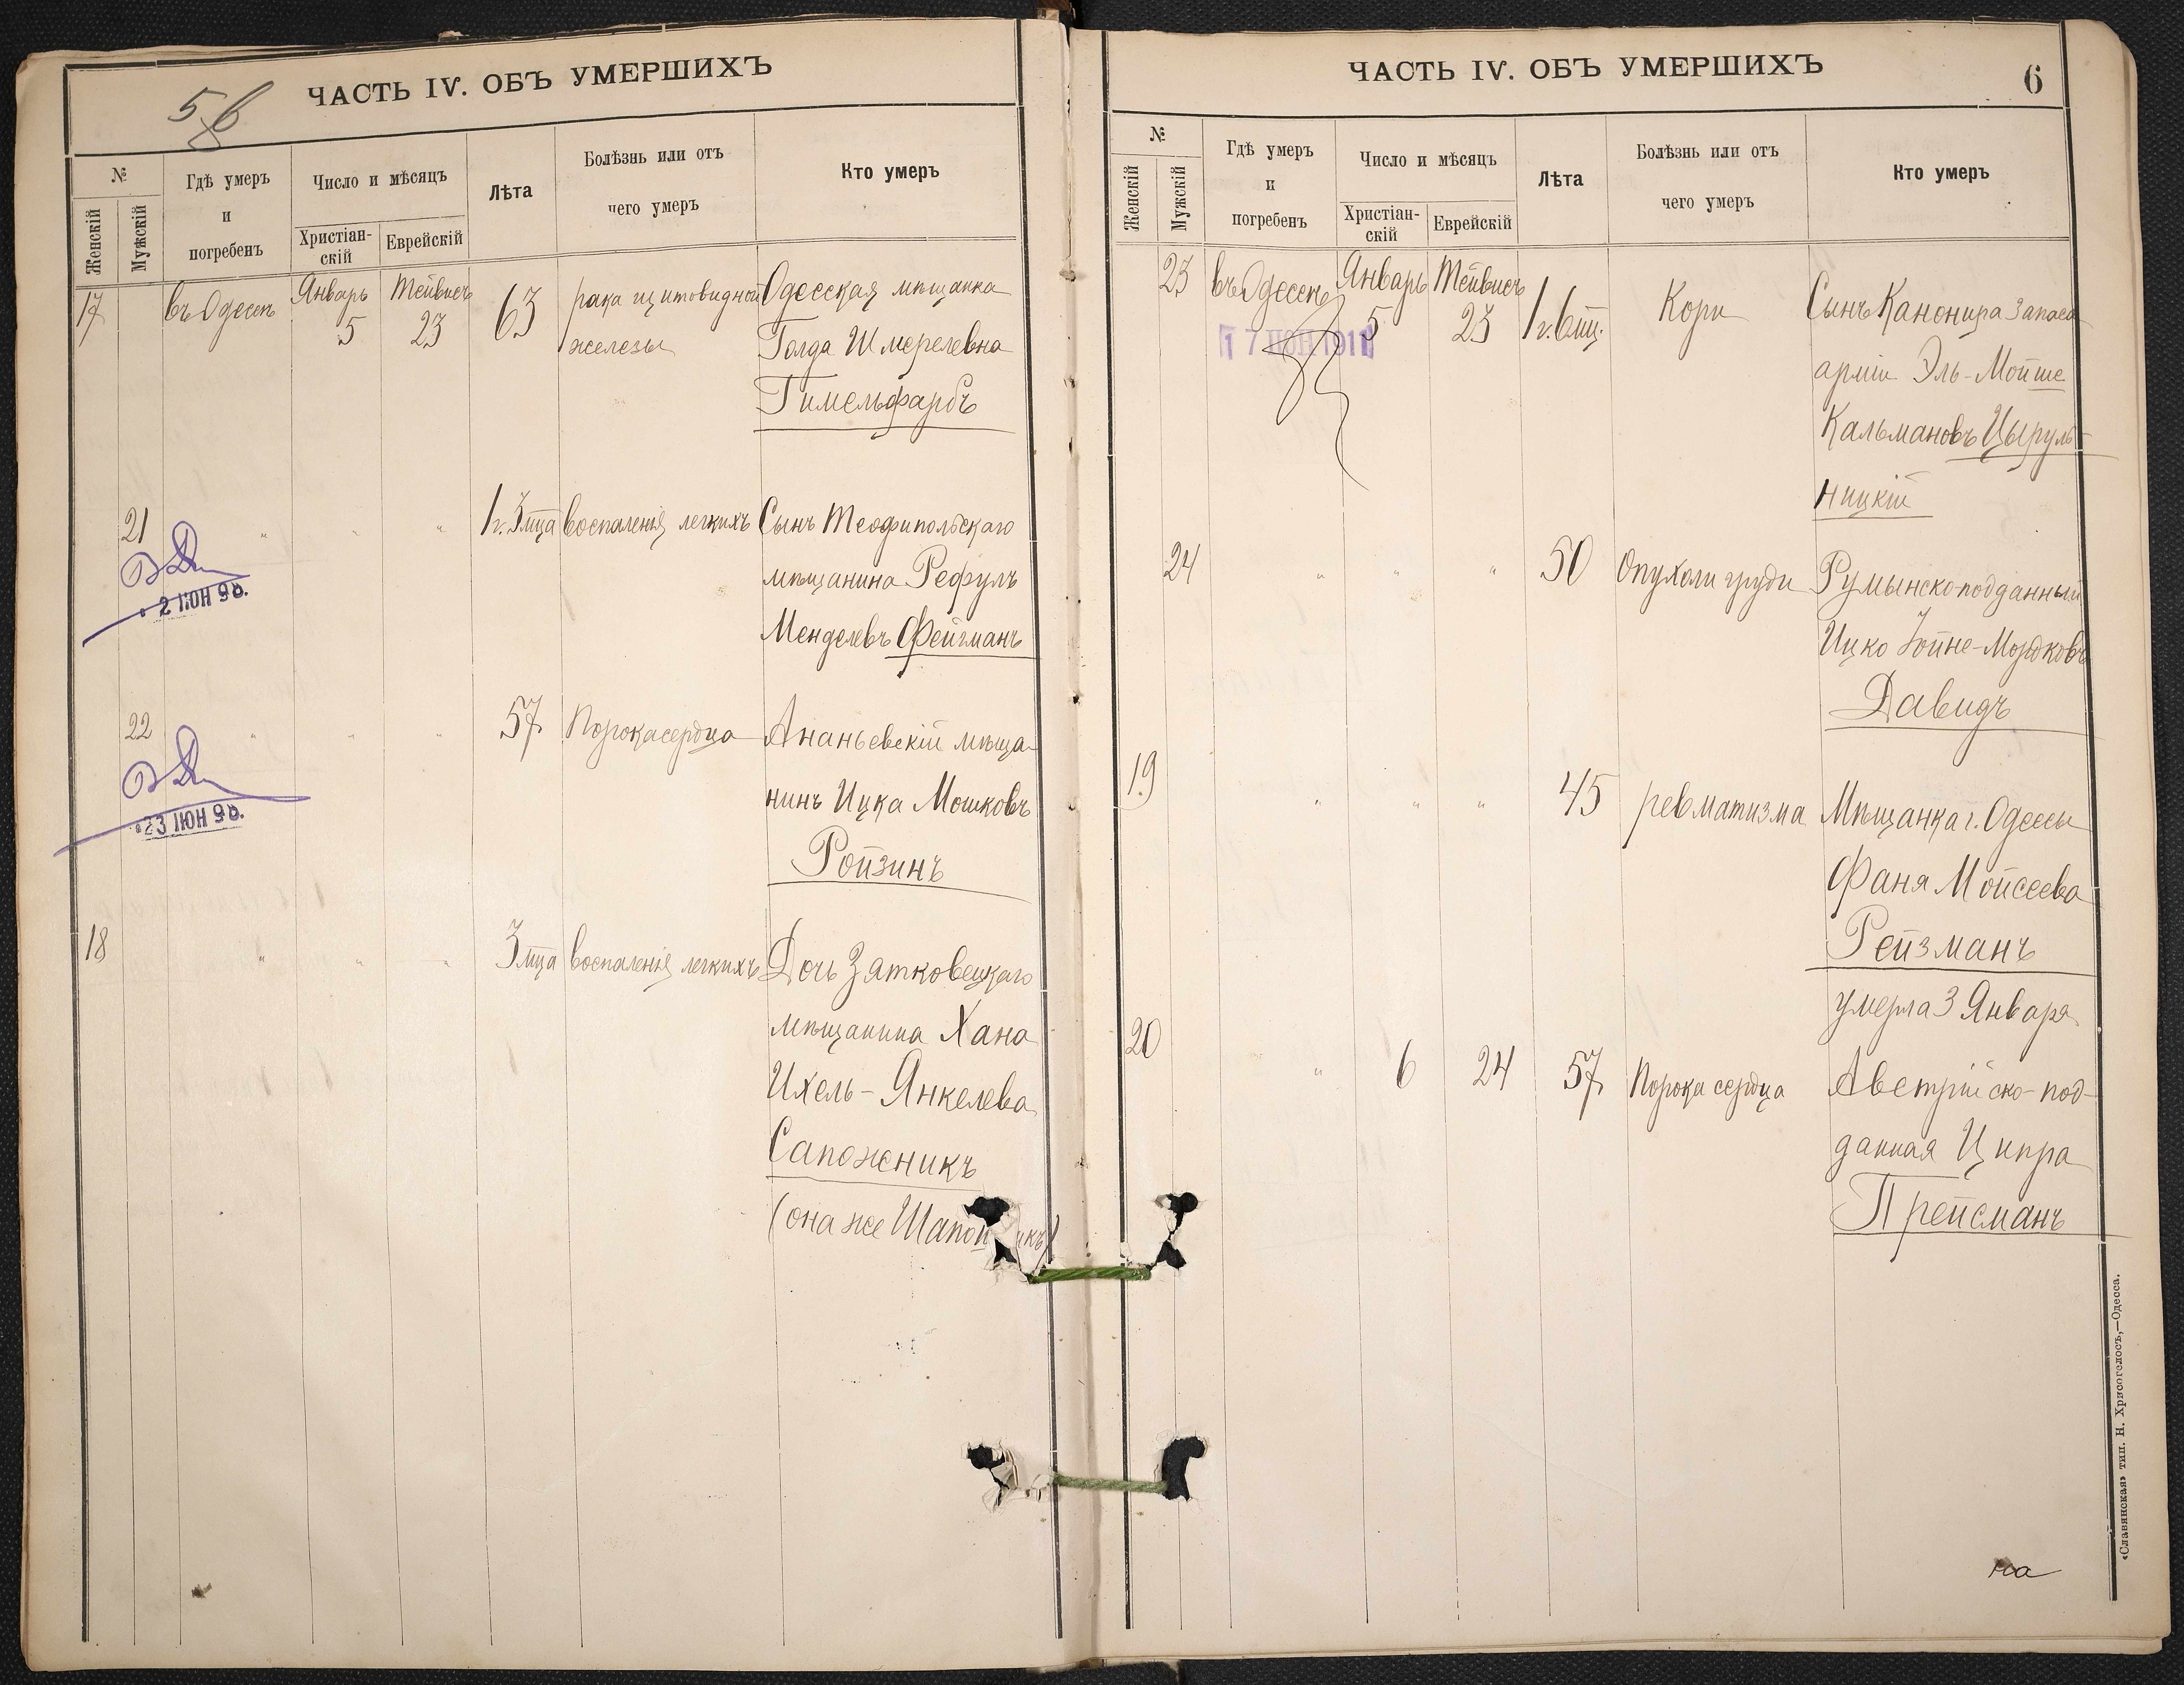 ЧАСТЬ IV. ОБЪ УМЕРШИХЪ
№
Женскій
Мужскій
Гдѣ умеръ
и
погребенъ
Число и мѣсяцъ
Христіан-
скій
Еврейскій
Лѣта
Болѣзнь или отъ
чего умеръ
Кто умеръ
17 въ Одессѣ Январь 5 Тейвисъ 23 63
рака щитовидной
железы
Одесская мѣщанка
Голда Шмерелевна
Гимельфарбъ
21 " " " 1 г. 3 мца воспаленія легкихъ
Сынъ Теофипольскаго
мѣщанина Рефулъ
Менделевъ Фейгманъ
2 ІЮН 98.
22 " " " 57 Порока сердца
Ананьевскій мѣща-
нинъ Ицка Мошковъ
Ройзинъ
23 ІЮН 98.
18 " " " 3 мца воспаленія легкихъ
Дочь Зятковецкаго
мѣщанина Хана
Ихель-Янкелева
Сапожникъ
(она же
ЧАСТЬ IV. ОБЪ УМЕРШИХЪ
6
№
Женскій
Мужскій
Гдѣ умеръ
и
погребенъ
Число и мѣсяцъ
Христіан-
скій
Еврейскій
Лѣта
Болѣзнь или отъ
чего умеръ
Кто умеръ
23 въ Одессѣ Январь 5 Тейвисъ 23 1 г. 6 мц. Кори
17 1911
Сынъ Канонира запаса
арміи Эль-Мойше
Кальмановъ Цыруль-
ницкій
24 " " " 50 Опухоли груди
Румынскоподданный
Ицко Зойне-Мордковъ
Давидъ
19 " " " 45 ревматизма
Мѣщанка г. Одессы
Фаня Мойсеева
Рейзманъ
умерла 3 Января
20 " 6 24 57 Порока сердца
Австрійско-под-
данная Ципра
Прейсманъ
на
«Славянская» тип. Н. Хрисогелосъ,—Одесса.